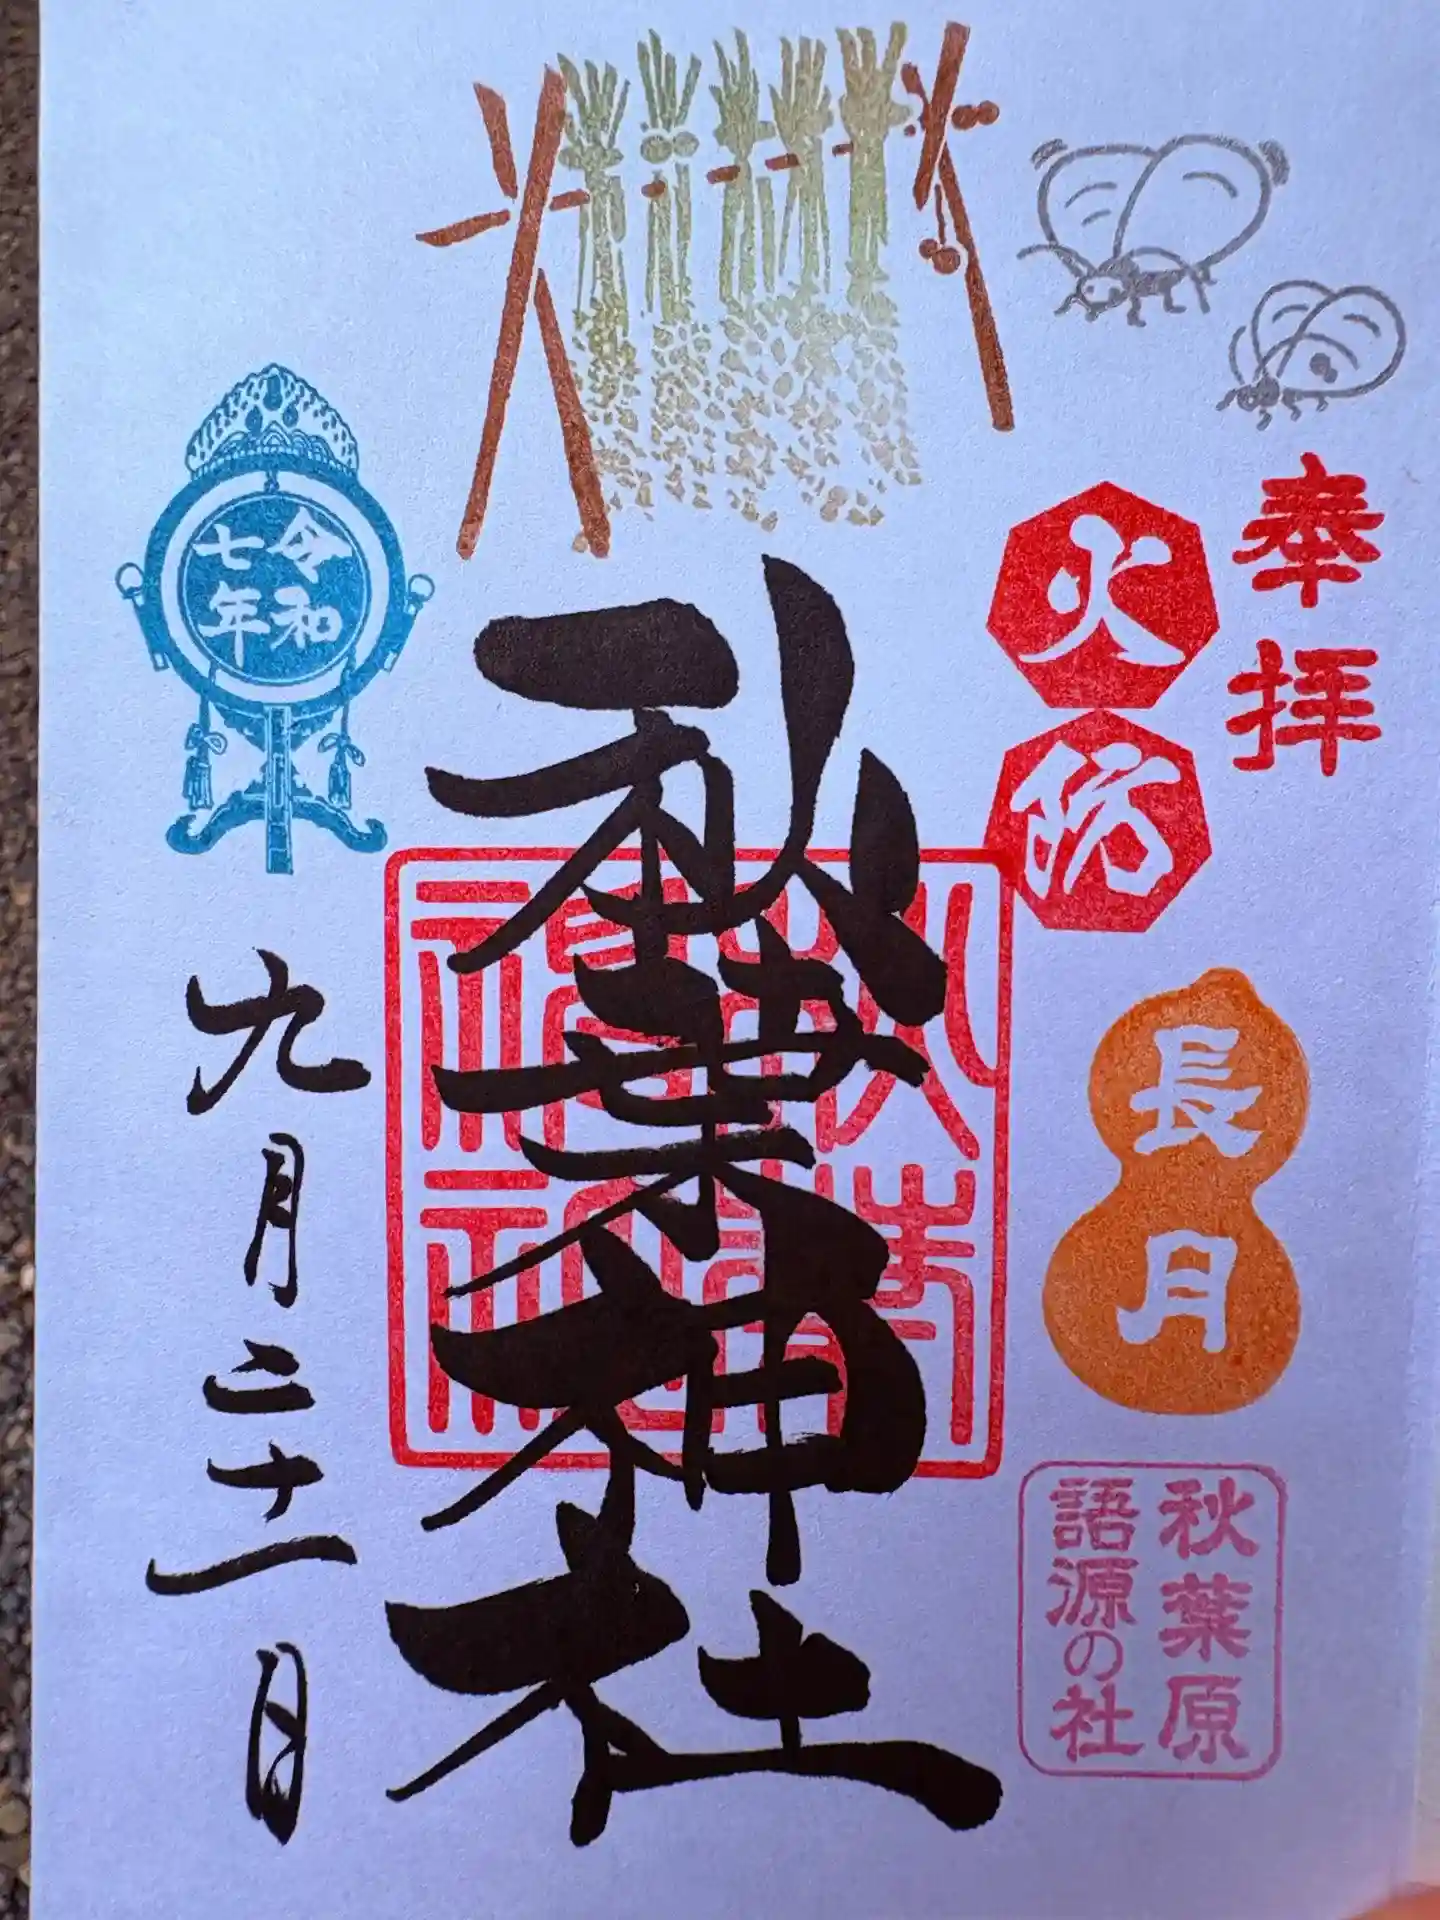 奉拝
火防
長月
秋葉原
語源の社
秋葉神社
令和
七年
九月二十一日